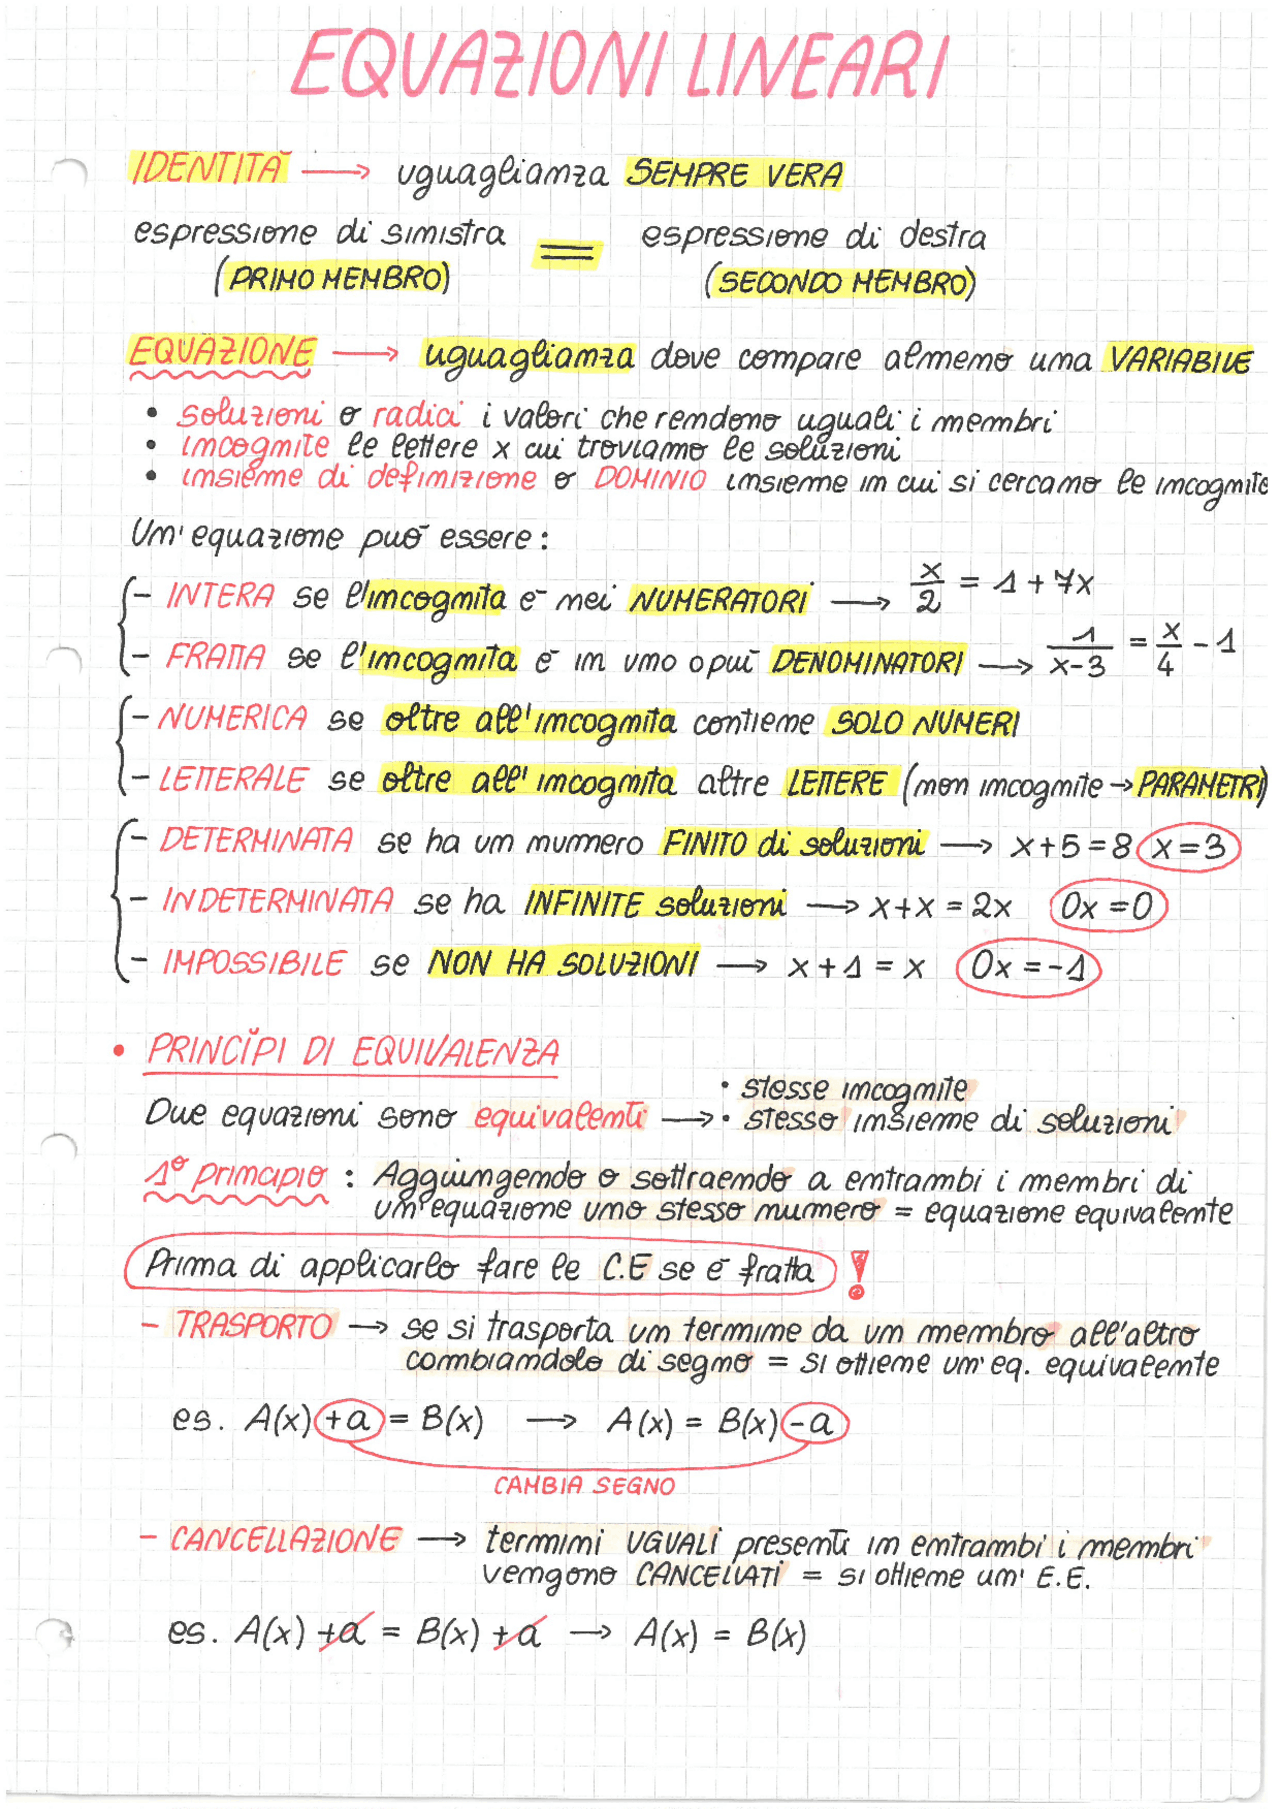 EQUAZIONI LINEARI
IDENTITÀ → uguaglianza SEMPRE VERA
espressione di sinistra = espressione di destra
(PRIMO MEMBRO) (SECONDO MEMBRO)
EQUAZIONE → uguaglianza dove compare almeno una VARIABILE
• soluzioni o radici i valori che rendono uguali i membri
• incognite le lettere x cui troviamo le soluzioni
• insieme di definizione o DOMINIO insieme in cui si cercano le incognite
Un'equazione può essere:
- INTERA se l'incognita è nei NUMERATORI → x/2 = 1 + 7x
- FRATTA se l'incognita è in uno o più DENOMINATORI → 1/(x-3) = x/4 - 1
- NUMERICA se oltre all'incognita contiene SOLO NUMERI
- LETTERALE se oltre all'incognita altre LETTERE (non incognite → PARAMETRI)
- DETERMINATA se ha un numero FINITO di soluzioni → x+5=8 x=3
- INDETERMINATA se ha INFINITE soluzioni → x+x=2x 0x=0
- IMPOSSIBILE se NON HA SOLUZIONI → x+1=x 0x=-1
• PRINCÌPI DI EQUIVALENZA
• stesse incognite
Due equazioni sono equivalenti → • stesso insieme di soluzioni
1° principio : Aggiungendo o sottraendo a entrambi i membri di
un'equazione uno stesso numero = equazione equivalente
Prima di applicarlo fare le C.E se è fratta !
- TRASPORTO → se si trasporta un termine da un membro all'altro
cambiandolo di segno = si ottiene un'eq. equivalente
es. A(x) +a = B(x) → A(x) = B(x) -a
CAMBIA SEGNO
- CANCELLAZIONE → termini UGUALI presenti in entrambi i membri
vengono CANCELLATI = si ottiene un' E.E.
es. A(x) +a = B(x) +a → A(x) = B(x)